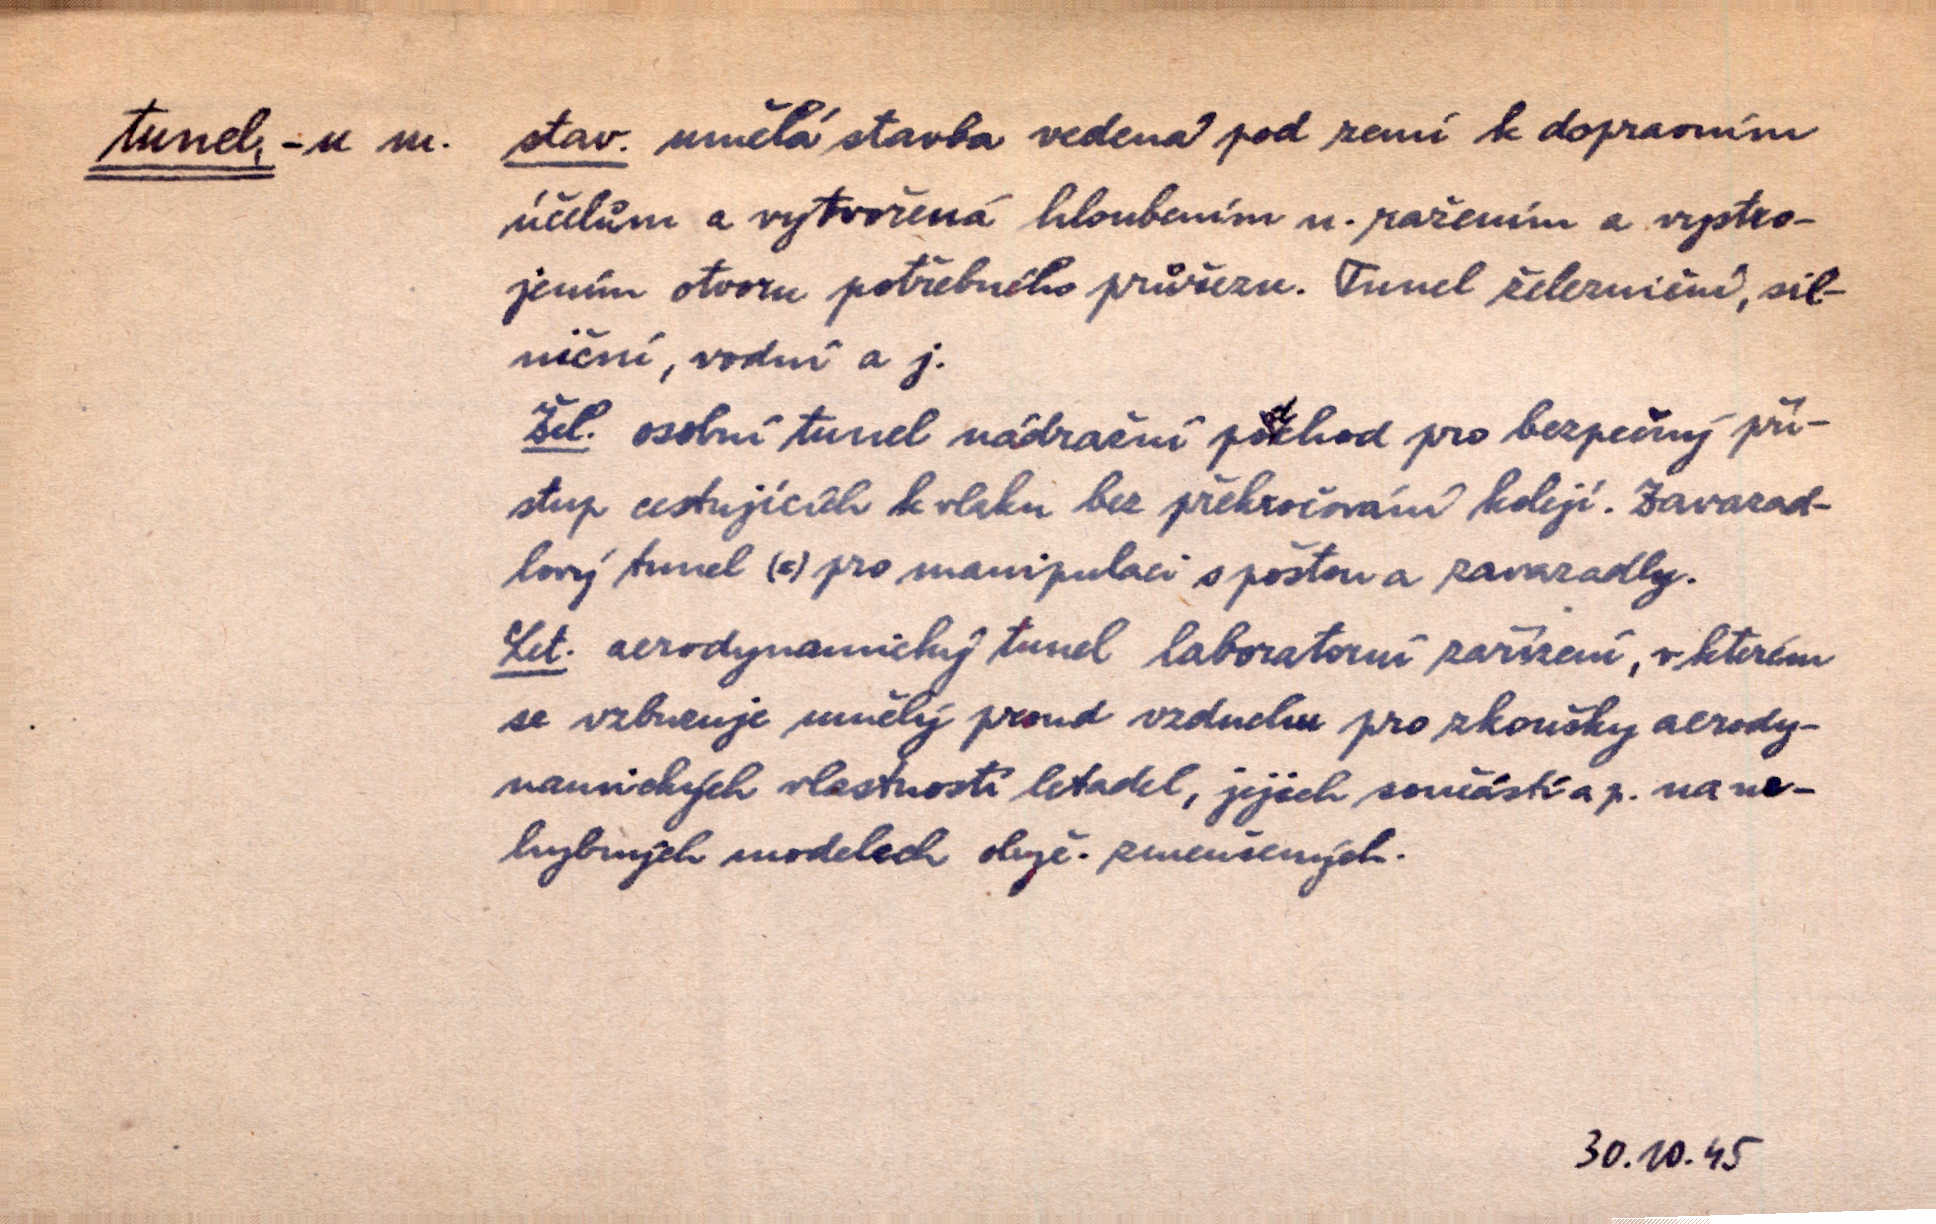 tunel, -u m. stav. umělá stavba vedená pod zemí k dopravním
účelům a vytvořená hloubením n. ražením a vystro-
jením otvoru potřebného průřezu. Tunel železniční, sil-
niční, vodní a j.
Žel. osobní tunel nádražní podchod pro bezpečný pří-
stup cestujících k vlaku bez překročování kolejí. Zavazad-
lový tunel (=) pro manipulaci s poštou a zavazadly.
Let. aerodynamický tunel laboratorní zařízení, v kterém
se vzbuzuje umělý proud vzduchu pro zkoušky aerody-
namických vlastností letadel, jejich součástí a p. na ne-
hybných modelech obyč. zmenšených.
30.10.45